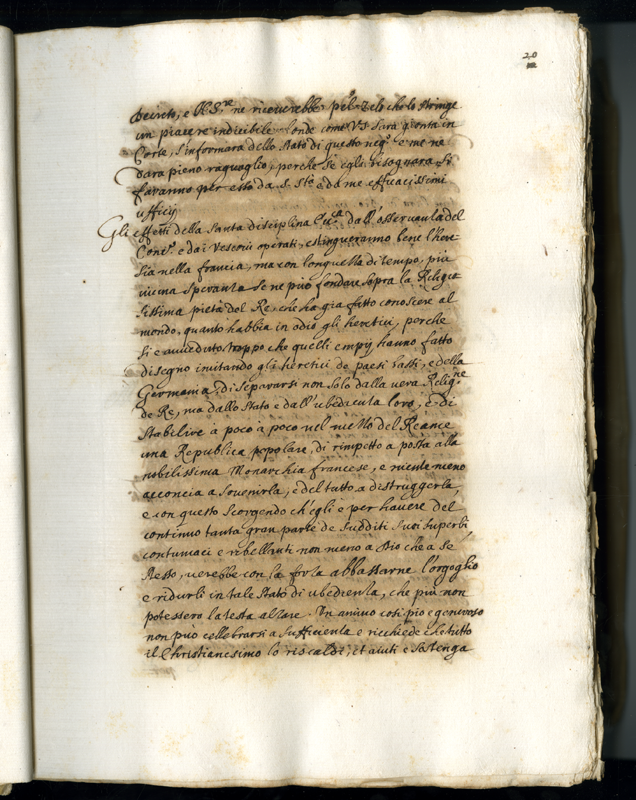 20
Decreto, e N. S.re ne riceverebbe pel zelo che lo stringe
un piacere indicibile onde come V S sarà gionta in
Corte, s'informara dello stato di questo neg.o e me ne
dara pieno raguaglio, perche se egli bisognara si
faranno per esso da S. S.tà e da me efficacissimi
ufficij
Gli effetti della santa disciplina dall'osservanza del
Conc.o e da i Vescovi operati, estingueranno bene l'here-
sia nella francia, ma con longhezza di tempo, più
vicina speranza se ne può fondare sopra la Religio
sissima pietà del Re, che ha gia fatto conoscere al
mondo, quanto habbia in odio gli heretici, perche
si e avveduto troppo che quelli empij hanno fatto
disegno invitando gli heretici de paesi bassi, e della
Germania, di separarsi non solo dalla vera Relig.ne
de Re, ma dallo stato e dall'ubedienza loro, e di
stabilire à poco à poco nel mezzo del Reame
una Republica popolare, di rimpetto a posta alla
nobilissima Monarchia francese, e niente meno
acconcia a sovenirla, e del tutto a distruggerla,
e con questo scorgendo ch'egli e per havere del
continuo tanta gran parte de sudditi suoi superbi
contumaci e ribellanti non meno a Dio che a sé
stesso, verebbe con la forza abbassarne l'orgoglio
e ridurli in tale stato di ubedienza, che più non
potessero la testa alzare. Un animo cosi pio e generoso
non può cellebrarsi a sufficienza e ricchiede che tutto
il Christianesimo lo riscaldi, et aiuti e sostenga